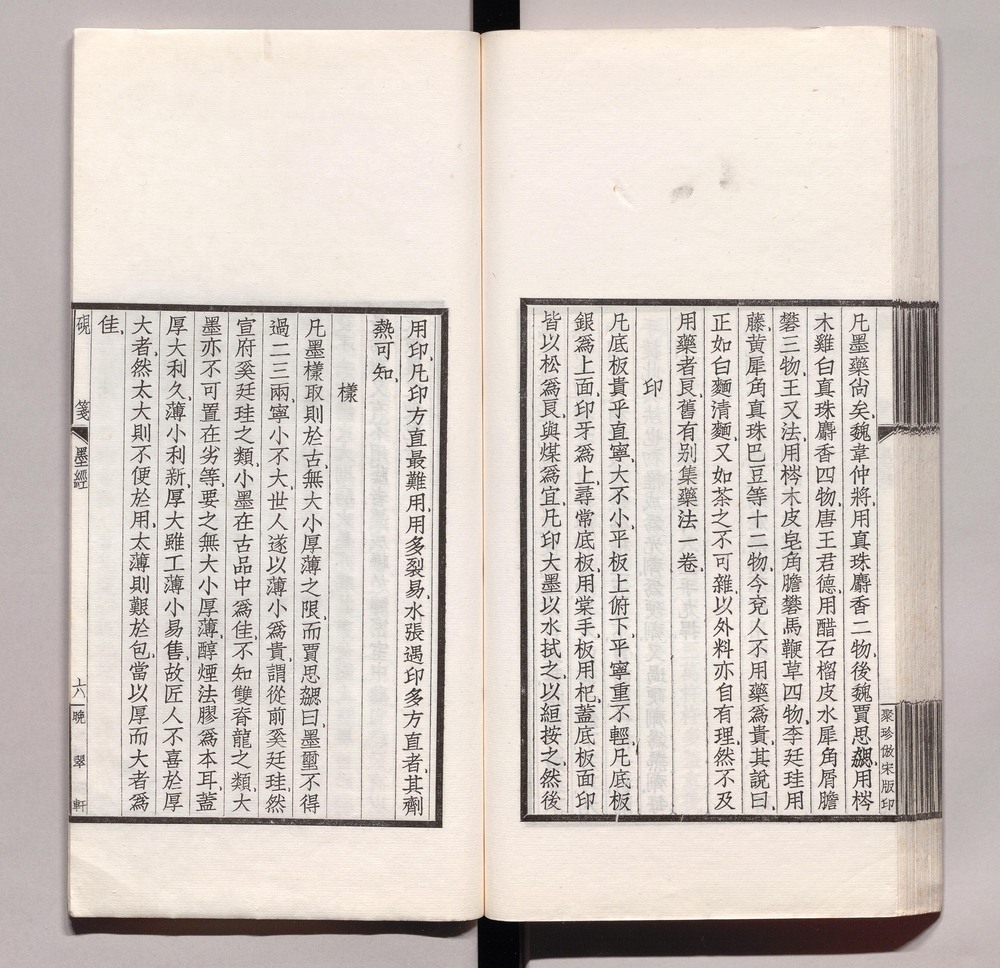 凡墨藥尙矣、魏韋仲將、用真珠麝香二物、後魏賈思勰、用梣
木雞白真珠麝香四物、唐王君德、用醋石榴皮水犀角屑膽
礬三物、王又法、用梣木皮皂角膽礬馬鞭草四物、李廷珪用
藤黃犀角真珠巴豆等十二物、今兗人不用藥爲貴、其說曰、
正如白麵清麵、又如茶之不可雜以外料、亦自有理、然不及
用藥者良、舊有別集藥法一卷、
印
凡底板貴乎直、寧大不小、平板上俯下平、寧重不輕、凡底板
銀爲上、面印牙爲上、尋常底板用棠、手板用杞、蓋底板面印
皆以松爲良、與煤爲宜、凡印大墨、以水拭之、以絙按之、然後
用印、凡印方直最難用、用多裂易、水張遇印多方直者、其劑
熱可知、
樣
凡墨樣取則於古、無大小厚薄之限、而賈思勰曰、墨璽不得
過二三兩、寧小不大、世人遂以薄小爲貴、謂從前奚廷珪、然
宣府奚廷珪之類、小墨在古品中爲佳、不知雙脊龍之類、大
墨亦不可置在劣等、要之無大小厚薄、醇煙法膠爲本耳、蓋
厚大利久、薄小利新、厚大雖工、薄小易售、故匠人不喜於厚
大者、然太大則不便於用、太薄則艱於包、當以厚而大者爲
佳、
硯箋 墨經 六 晩翠軒
聚珍倣宋版印